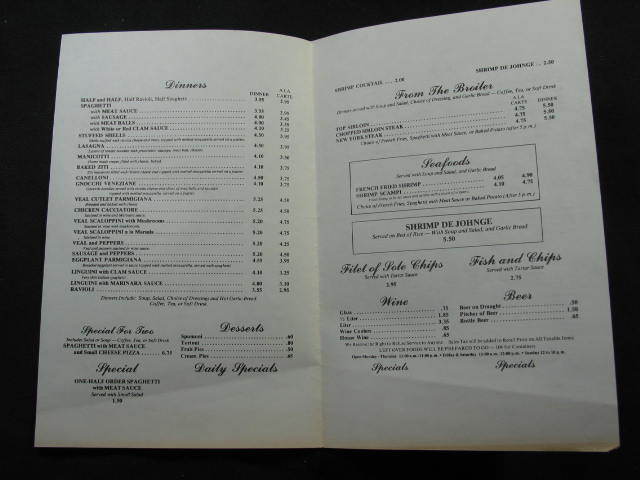 Dinners
DINNER
A LA CARTE
HALF and HALF, Half Ravioli, Half Spaghetti 3.95 2.95
SPAGHETTI
with MEAT SAUCE 3.95 2.95
with SAUSAGE
with MEAT BALLS
with White or Red CLAM SAUCE 4.10
STUFFED SHELLS
LASAGNA
MANICOTTI 4.10
BAKED ZITI 4.10
CANELLONI 4.50 3.75
GNOCCHI VENEZIANE 4.10 3.75
VEAL CUTLET PARMIGIANA 5.25 4.50
CHICKEN CACCIATORE 5.25 4.50
VEAL SCALOPPINI with Mushrooms 5.25 4.50
VEAL SCALOPPINI a la Marsala 5.25 4.50
VEAL and PEPPERS 5.25 4.50
SAUSAGE and PEPPERS
EGGPLANT PARMIGIANA 3.95
LINGUINI with CLAM SAUCE 4.10 3.25
LINGUINI with MARINARA SAUCE 4.00 3.30
RAVIOLI 3.95 2.95
Dinners Include: Soup, Salad, Choice of Dressings and Hot Garlic Bread
Coffee, Tea, or Soft Drink
Special For Two
Includes Salad or Soup — Coffee, Tea, or Soft Drink
SPAGHETTI with MEAT SAUCE
and Small CHEESE PIZZA 6.75
Special
ONE-HALF ORDER SPAGHETTI
with MEAT SAUCE
Served with Small Salad
1.50
Desserts
Spumoni .60
Tortoni
Fruit Pies .50
Cream Pies .65
Daily Specials
SHRIMP COCKTAIL 2.00
SHRIMP DE JOHNGE 2.50
From The Broiler
Dinners served with Soup and Salad, Choice of Dressing, and Garlic Bread — Coffee, Tea, or Soft Drink
A LA CARTE
DINNER
TOP SIRLOIN 4.75 5.50
CHOPPED SIRLOIN STEAK 4.75 5.50
NEW YORK STEAK 4.75 5.50
Choice of French Fries, Spaghetti with Meat Sauce, or Baked Potato (after 5 p.m.)
Seafoods
Served with Soup and Salad, and Garlic Bread
FRENCH FRIED SHRIMP 4.05 4.90
SHRIMP SCAMPI 4.10 4.75
Choice of French Fries, Spaghetti with Meat Sauce or Baked Potato (After 5 p.m.)
SHRIMP DE JOHNGE
Served on Bed of Rice — With Soup and Salad, and Garlic Bread
5.50
Filet of Sole Chips
Served with Tartar Sauce
3.95
Fish and Chips
Served with Tartar Sauce
2.75
Wine
Glass .75
½ Liter 1.85
Liter 3.35
Wine Cooler .85
House Wine .65
Beer
Beer on Draught .50
Pitcher of Beer
Bottle Beer .65
We Reserve the Right to Refuse Service to Anyone
Sales Tax will be Added to Retail Price on All Taxable Items
LEFT OVER FOODS WILL BE PREPARED TO GO — 10¢ for Containers
Open Monday - Thursday 11:00 a.m. - 11:00 p.m. • Friday & Saturday 11:00 a.m. - 12:00 p.m. • Sunday 12 to 10 p.m.
Specials
Specials